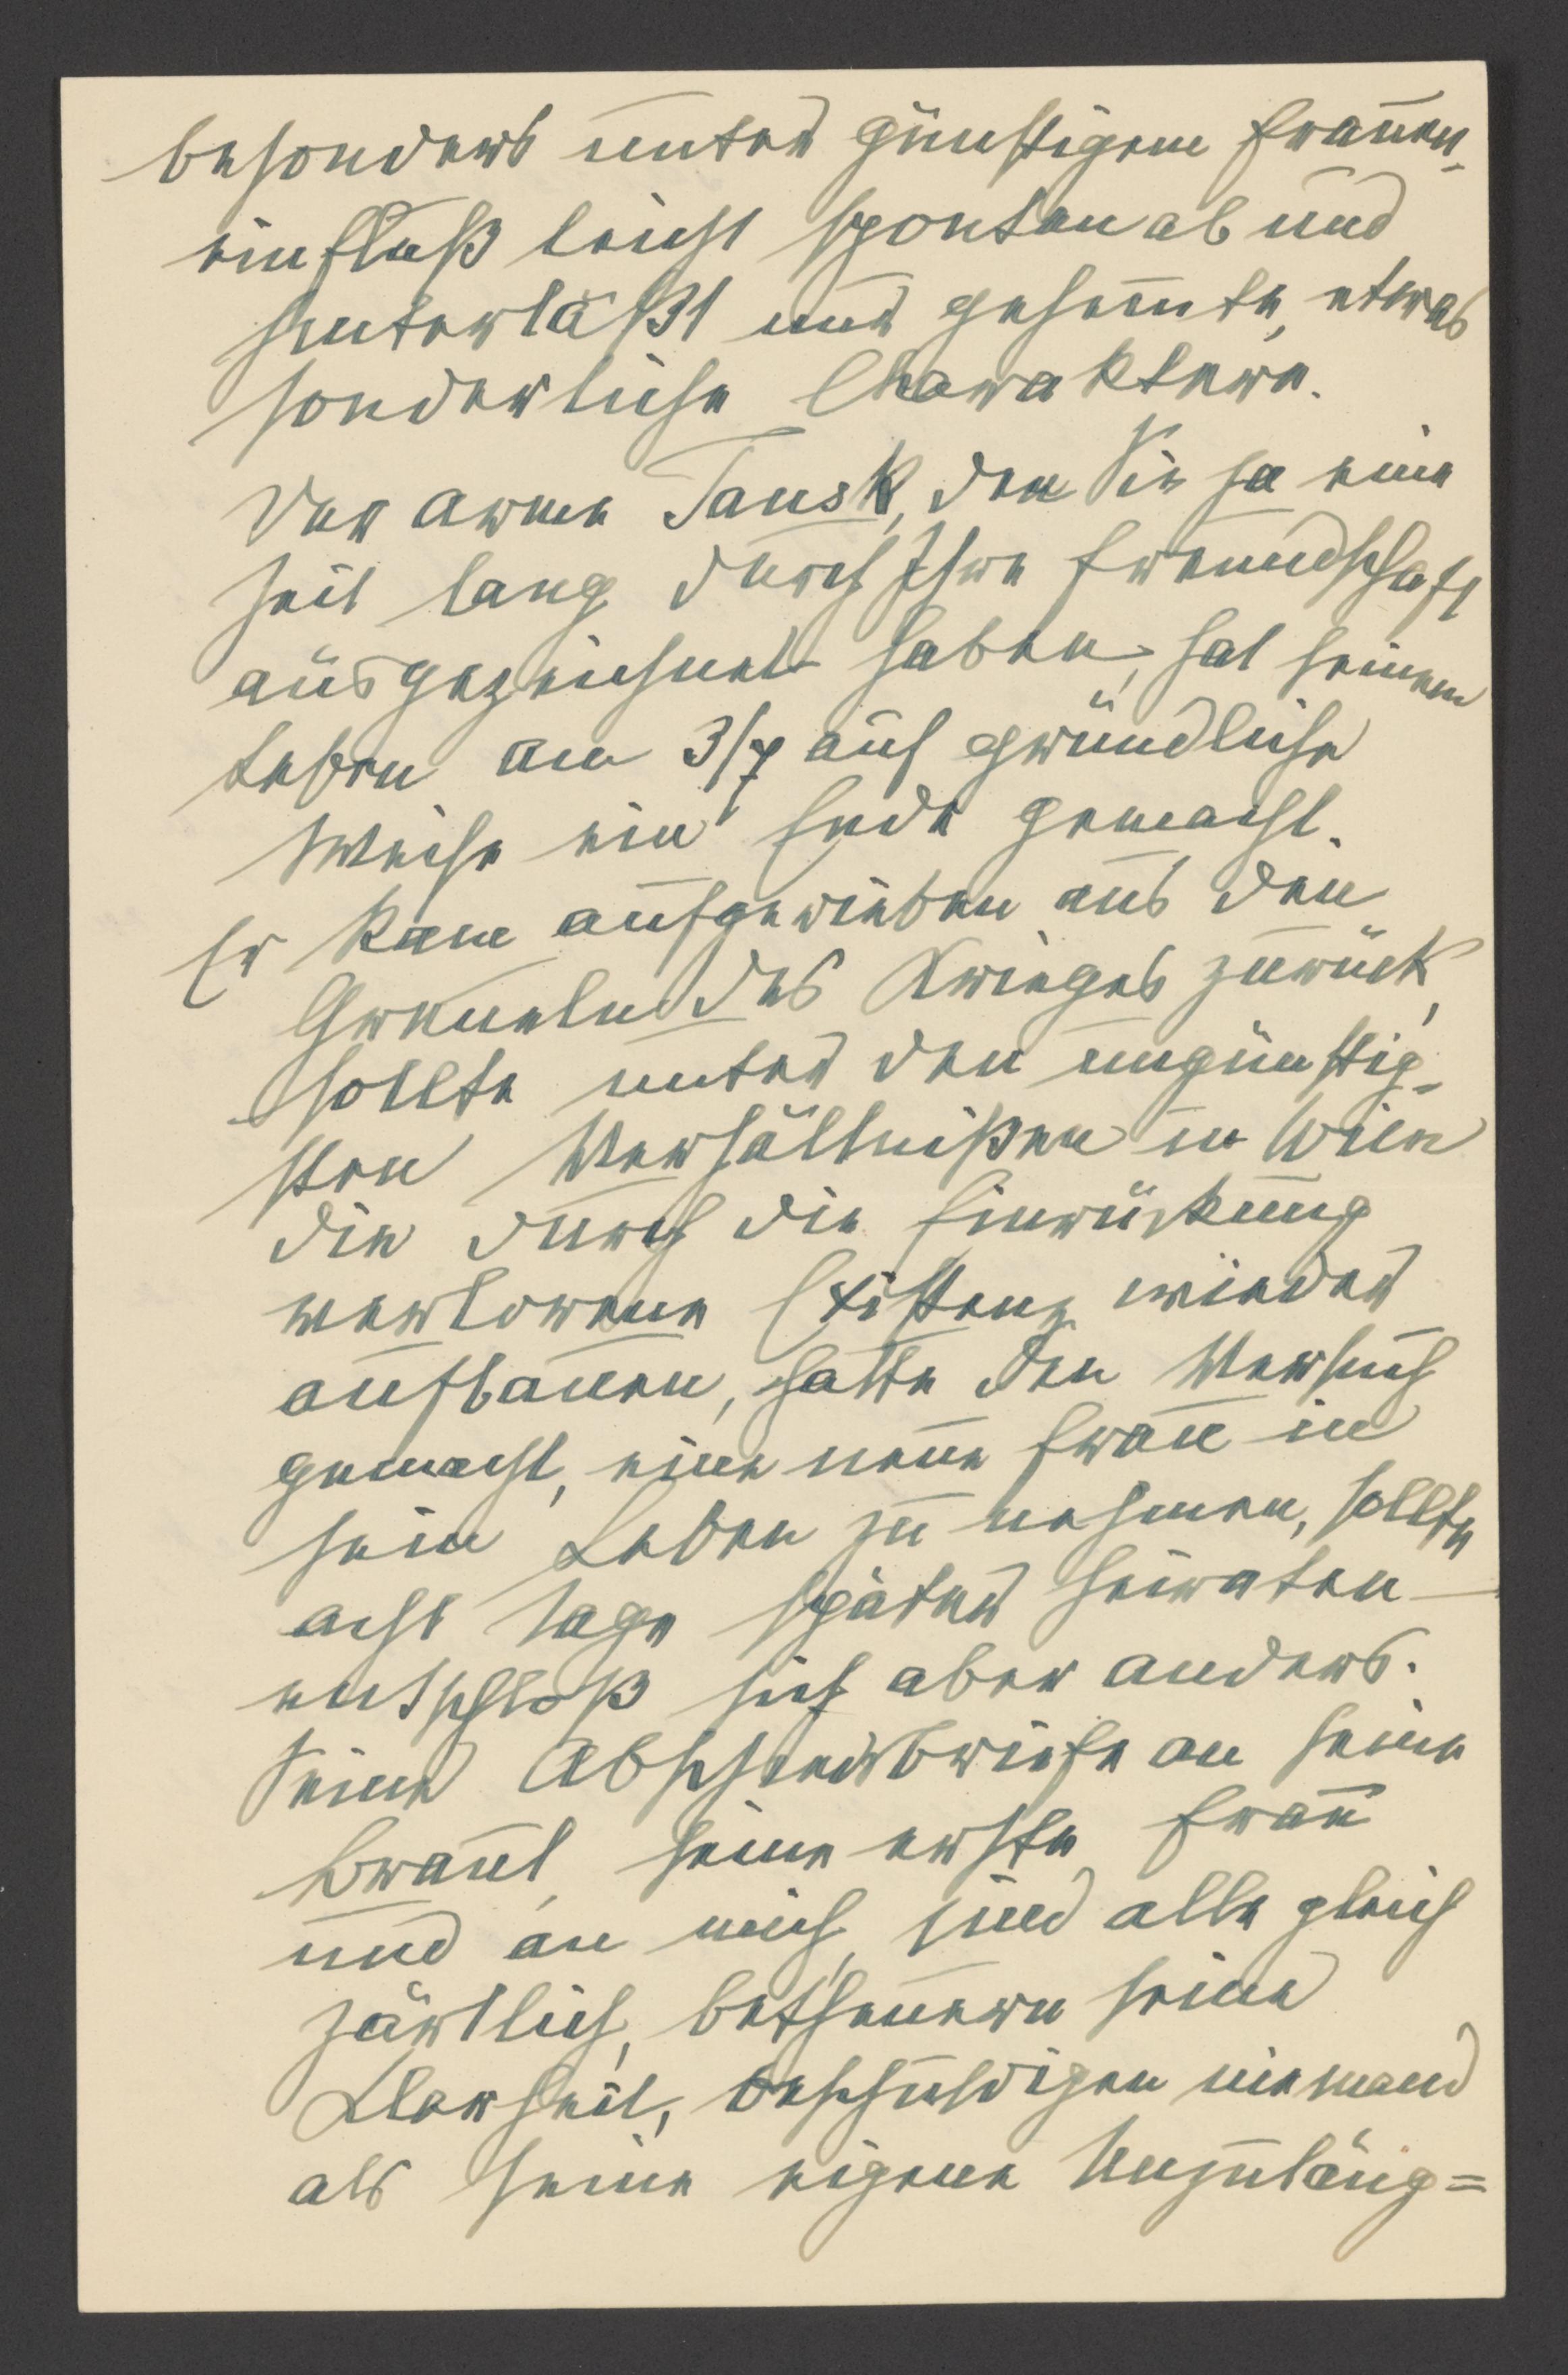 besonders unter günstigem Frauen-
einfluß leicht spontan ab und
hinterläßt nur gehemmte, etwas
sonderliche Charaktere.
Der arme Tausk, den Sie ja eine
Zeit lang durch Ihre Freundschaft
ausgezeichnet haben, hat seinem
Leben am 3/7 auf gründliche
Weise ein Ende gemacht.
Er kam aufgerieben aus den
Greueln des Krieges zurück,
sollte unter den ungünstig-
sten Verhältnißen in Wien
die durch die Einrückung
verlorene Existenz wieder
aufbauen, hatte den Versuch
gemacht, eine neue Frau in
sein Leben zu nehmen, sollte
acht Tage später heiraten –
entschloß sich aber anders.
Seine Abschiedsbriefe an seine
Braut, seine erste Frau
und an mich, sind alle gleich
zärtlich, betheuern seine
Klarheit, beschuldigen niemand
als seine eigene Unzuläng=